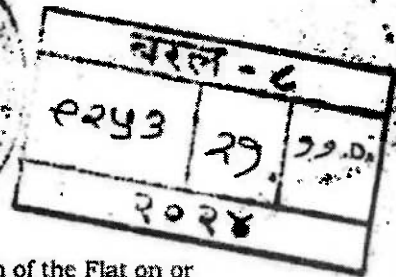 बरल - ८
९२५३ २१ ११०
२०२४
n of the Flat on or